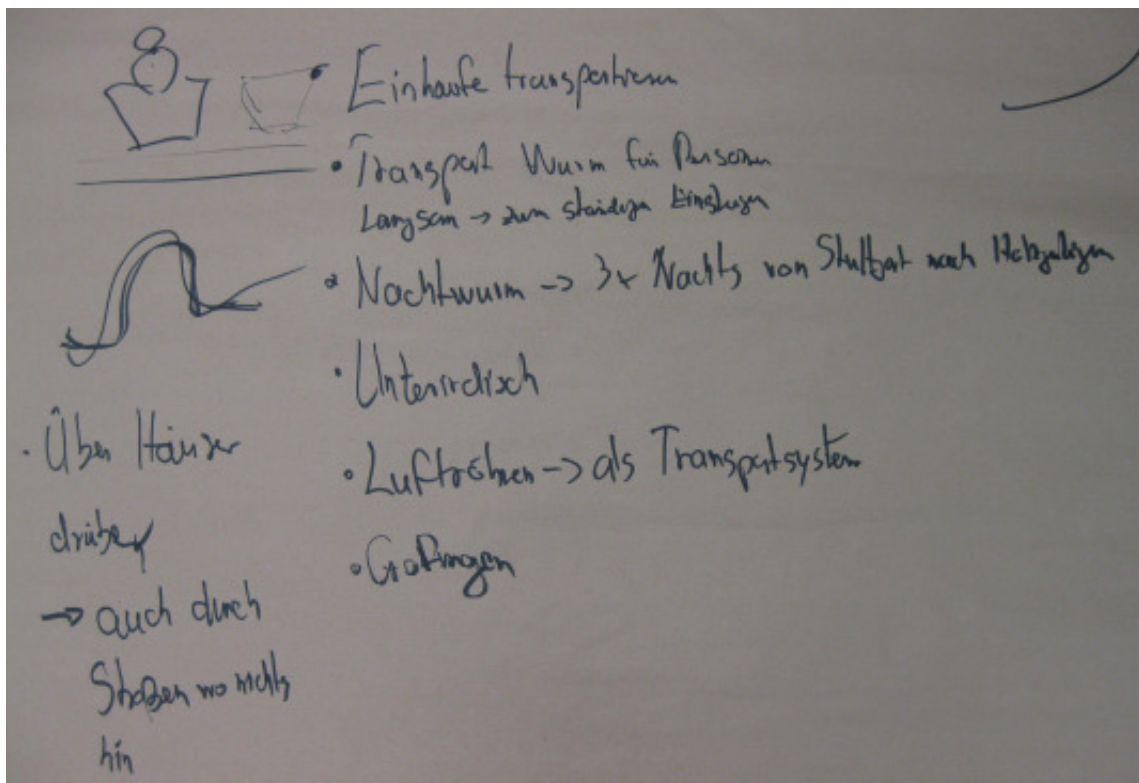 Einkaufe transportieren
• Transport Wurm für Personen
Langsam → zum ständigen Einsteigen
• Nachtwurm → 3x Nachts von Stuttgart nach
• Unterirdisch
• Luftröhren → als Transportsystem
• Über Häuser
drüber
→ auch durch
Straßen wo nichts
hin